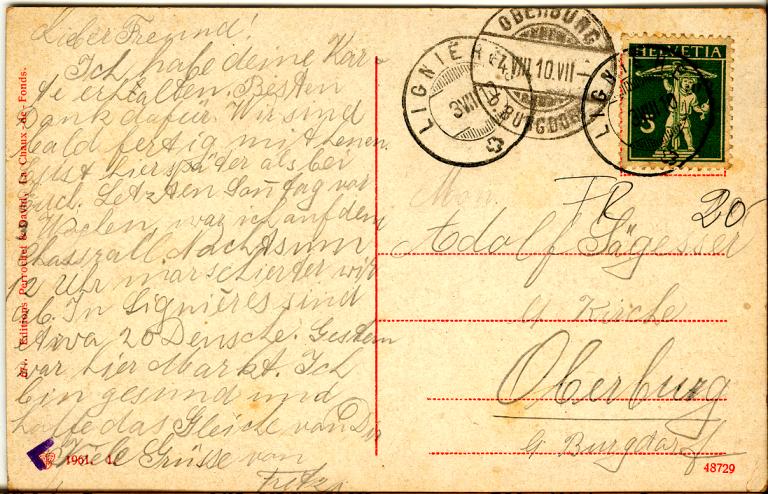 Lieber Freund!
Ich habe deine Kar-
te erhalten. Besten
Dank dafür. Wir sind
bald fertig mit heuen.
Es ist hier später als bei
Euch. Letzten Sonntag vor
8 Wochen, war ich auf dem
Chasseral. Nachts um
12 Uhr marschierten wir
ab. In Lignières sind
etwa 20 Deusche. Gestern
war hier Markt. Ich
bin gesund und
hoffe das Gleiche von Dir
Viele Grüsse von
Fritz
Editions Perrochet & David, La Chaux-de-Fonds.
1961.
OBERBURG
4.VIII.10.VII
b. BURGDORF
LIGNIÈRES
LIGNIÈRES
HELVETIA
5
FR 20
Mon.
Adolf Sägesser
Kirche
Oberburg
Burgdorf
48729